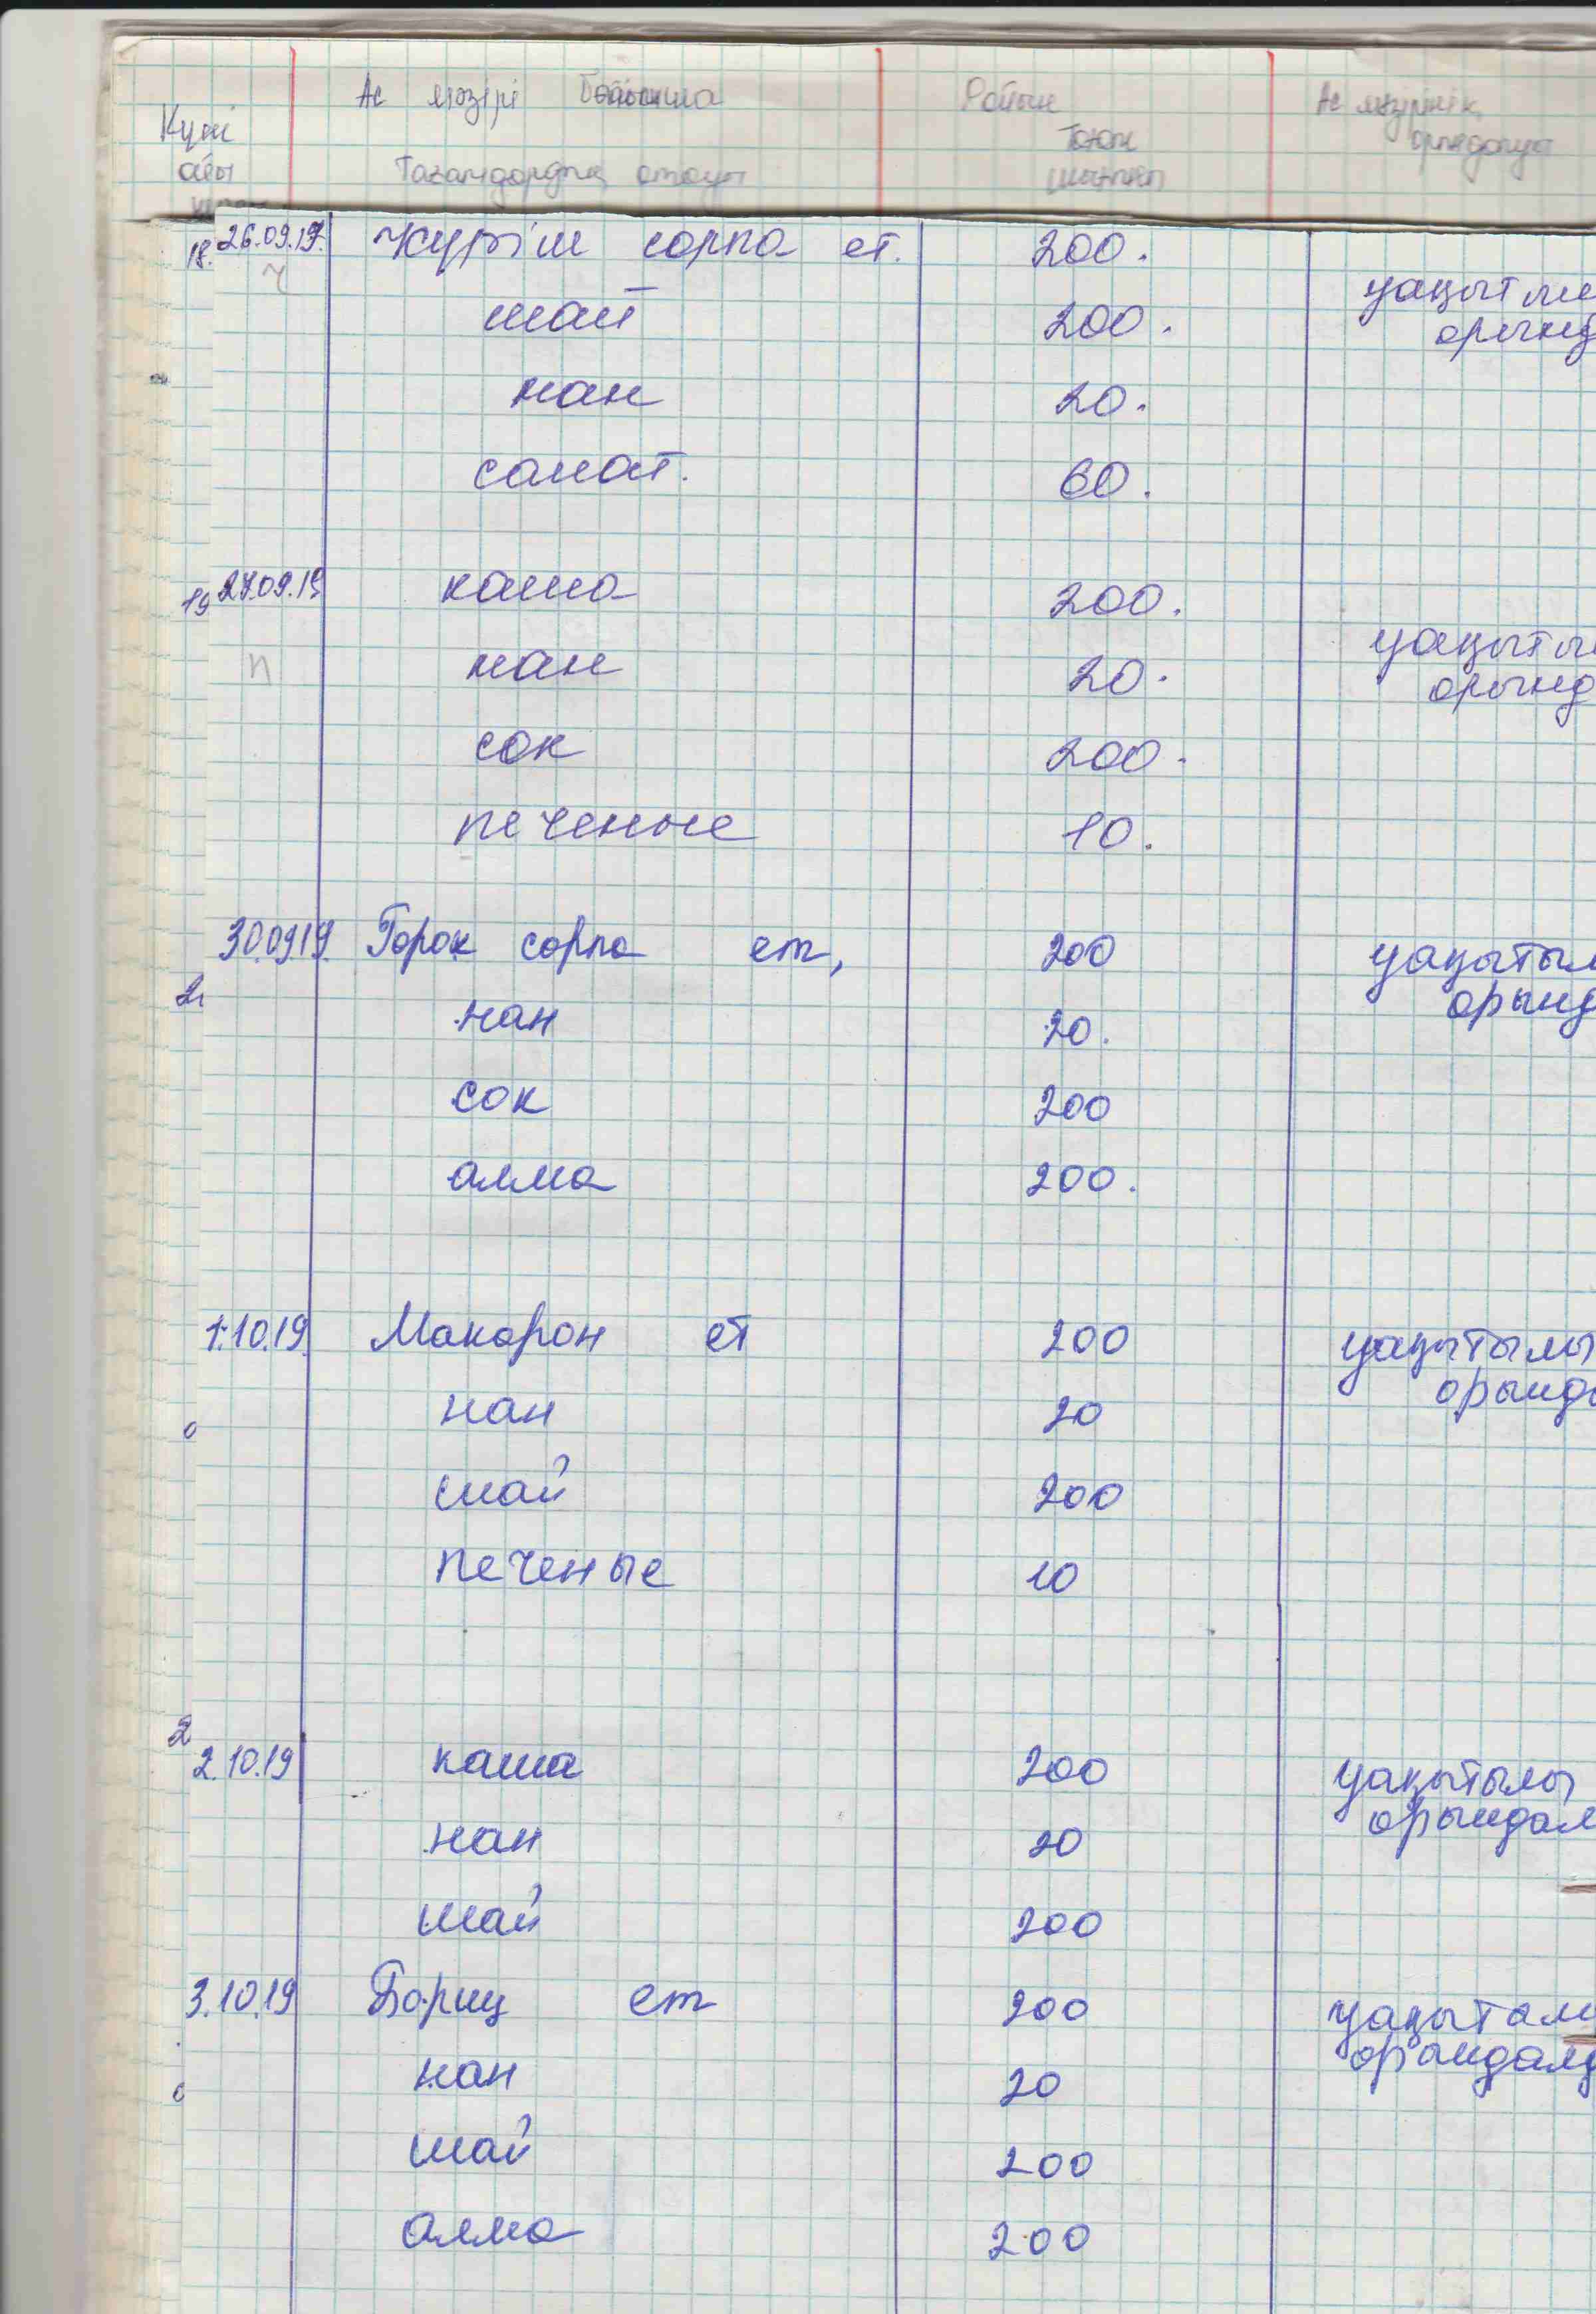 Ас мәзірі Бойынша
Күні
айы
Тағамдардың аталуы
Ас мәзірінің
18. 26.09.19 Күріш сорпа ет. 200.
уақытылы
орынд
шай 200.
нан 20.
салат. 60.
19 27.09.19 каша 200.
уақыты
орынд
нан 20.
сок 200.
печенье 10.
30.09.19. Горох сорпа ет, 200 уақытыл
орынд
нан 20.
сок 200
алма 200.
1.10.19. Макарон ет 200 уақытылы
орында
нан 20
шай 200
печенье 10
2.10.19 каша 200 уақытылы
орындал
нан 20
шай 200
3.10.19 Борщ ет 200 уақытылы
орындалд
нан 20
шай 200
алма 200